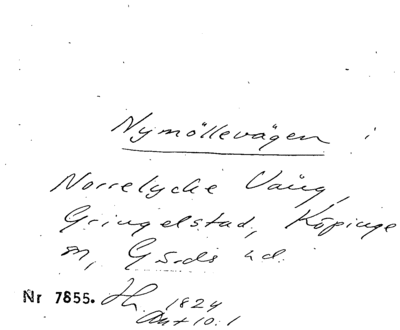 Nymöllevägen i
Norrelycke Vång,
Gringelstad, Köpinge
sn, Gärds hd.
Nr 7855. 1824
Akt 10:1